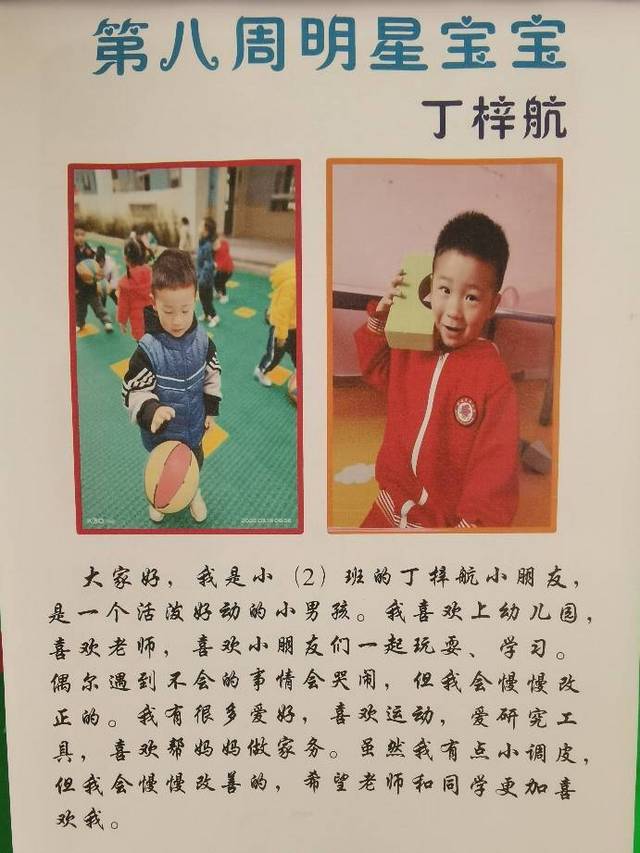 第八周明星宝宝
丁梓航
大家好，我是小（2）班的丁梓航小朋友，
是一个活泼好动的小男孩。我喜欢上幼儿园，
喜欢老师，喜欢小朋友们一起玩耍、学习。
偶尔遇到不会的事情会哭闹，但我会慢慢改
正的。我有很多爱好，喜欢运动，爱研究工
具，喜欢帮妈妈做家务。虽然我有点小调皮，
但我会慢慢改善的，希望老师和同学更加喜
欢我。